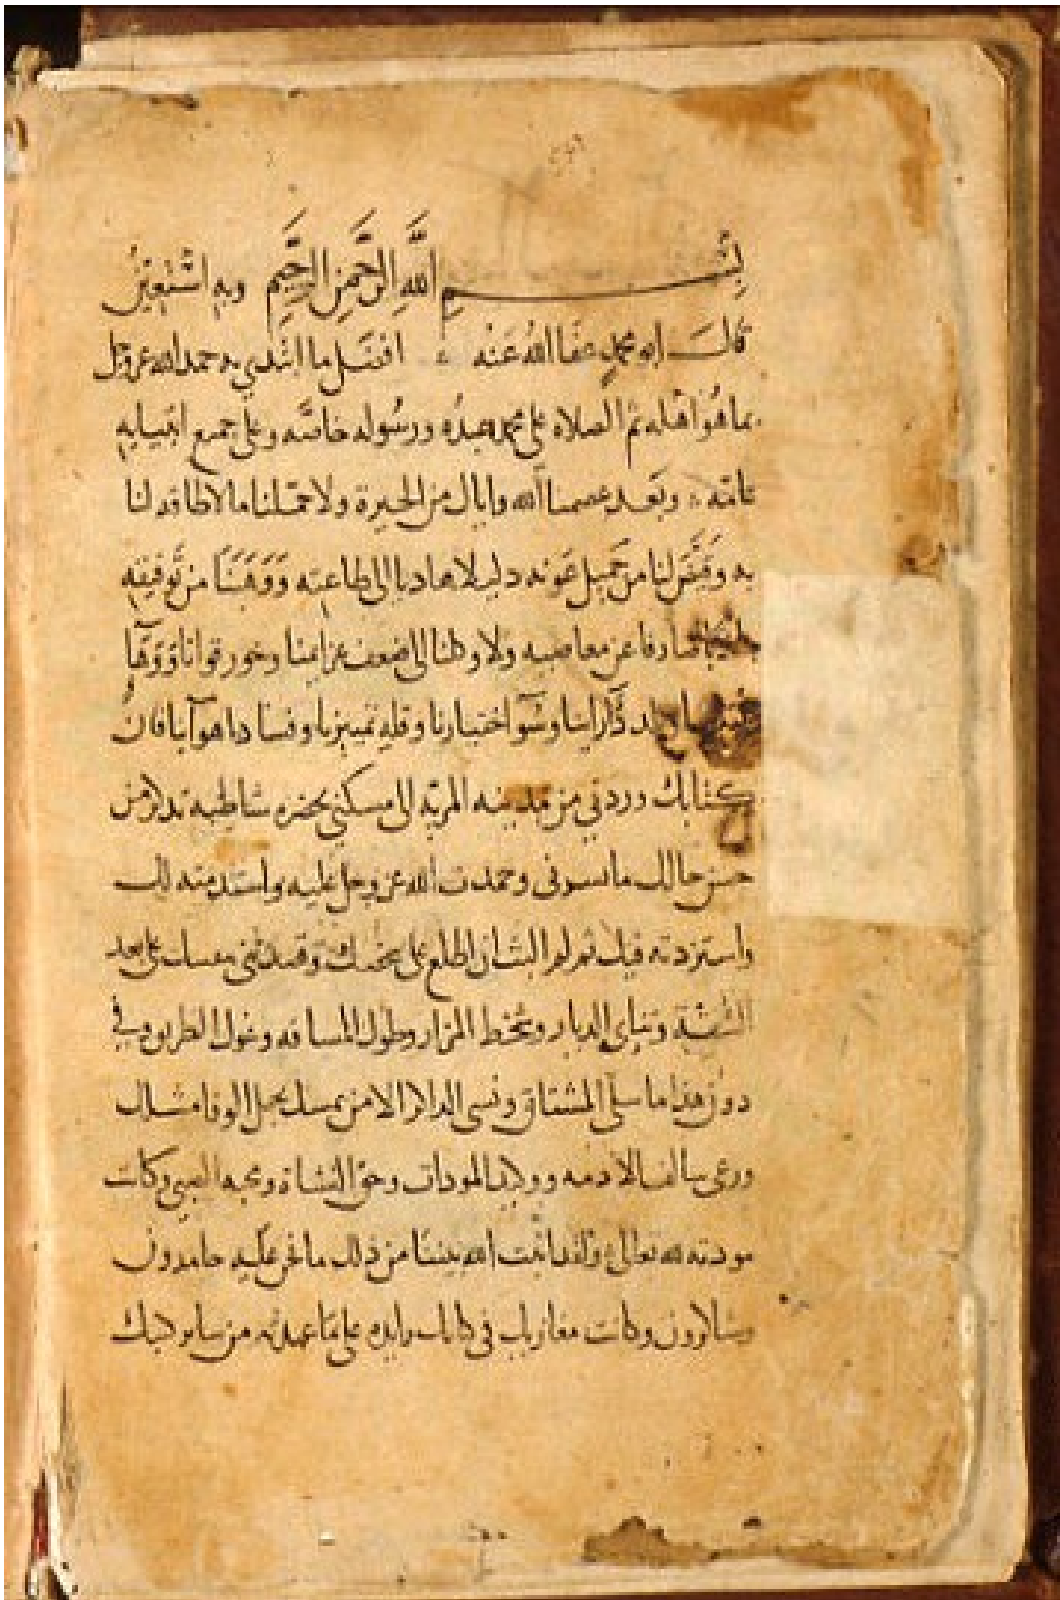 بِسْمِ اللَّهِ الرَّحْمنِ الرَّحِيمِ وبه اسْتَعِينُ
قال ابو محمدٍ عفا اللهُ عَنْه افضل ما ابتدي به حمد الله عز وجل
بما هُوَ اهْله ثم الصلاة على محمد عبدُه ورسُوله خاصّه وعلى جميع انبيايه
عامّه وبَعد عصمنا الله واياك من الحيرة ولا حمّلنا ما لا طاقه لنا
به وقَيَّضَ لنا من جَميل عَونه دليلا هاديا الى طاعته وَوَهَبَنَا من تَوفيقِهِ
صارفا عن معاصيه ولا وكلنا الى ضعف عزايمنا وخور قوانا وَوَهَا
ارآينا وسُوَ اختيارنا وقله تمييزنا وفساد اهوآينا فان
كتابك وردني من مدينه المريّه الى مسكني بحضره شاطبه تذكر من
حسن حالك ما سرني وحمدت الله عز وجل عليه واستدمته لك
واستزدته فيك ثم لم البث ان اطلع على شخصك وقصدتني بنفسك على بعد
الشقّة وتنايي الديار وشحط المزار وطول المسافه وغول الطريق وفي
دون هذا ما سلّى المشتاق ونسى الذاكر الا من تمسك بحبل الوفا مثلك
ورعى سالف الاذمه ووكيد المودات وحق النشاة ومحبه الصبى وكانت
مودته لله تعالى ولقد اثبت الله بيننا من ذلك ما نحن عليه حامدون
وشاكرون وكانت مغازيك في كتابك زايده على ما عهدته من ساير كتبك